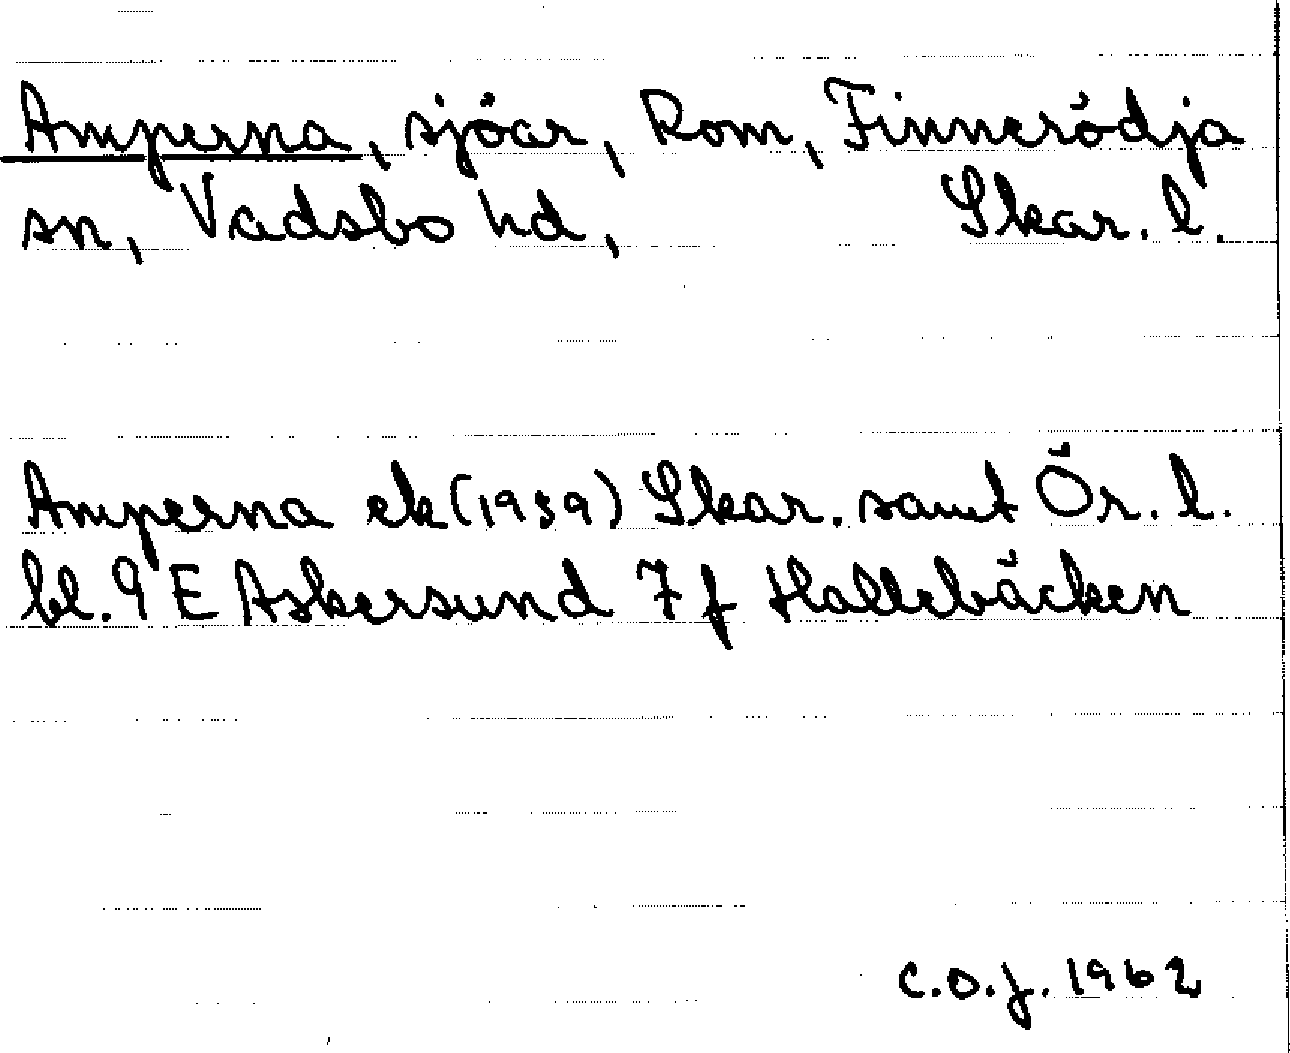 Amperna, sjöar, Rom, Finnerödja
sn, Vadsbo hd, Skar. l.
Amperna ek (1959) Skar. samt Ör. l.
bl. 9 E Askersund 7 f Hallebäcken
C.O.J. 1962